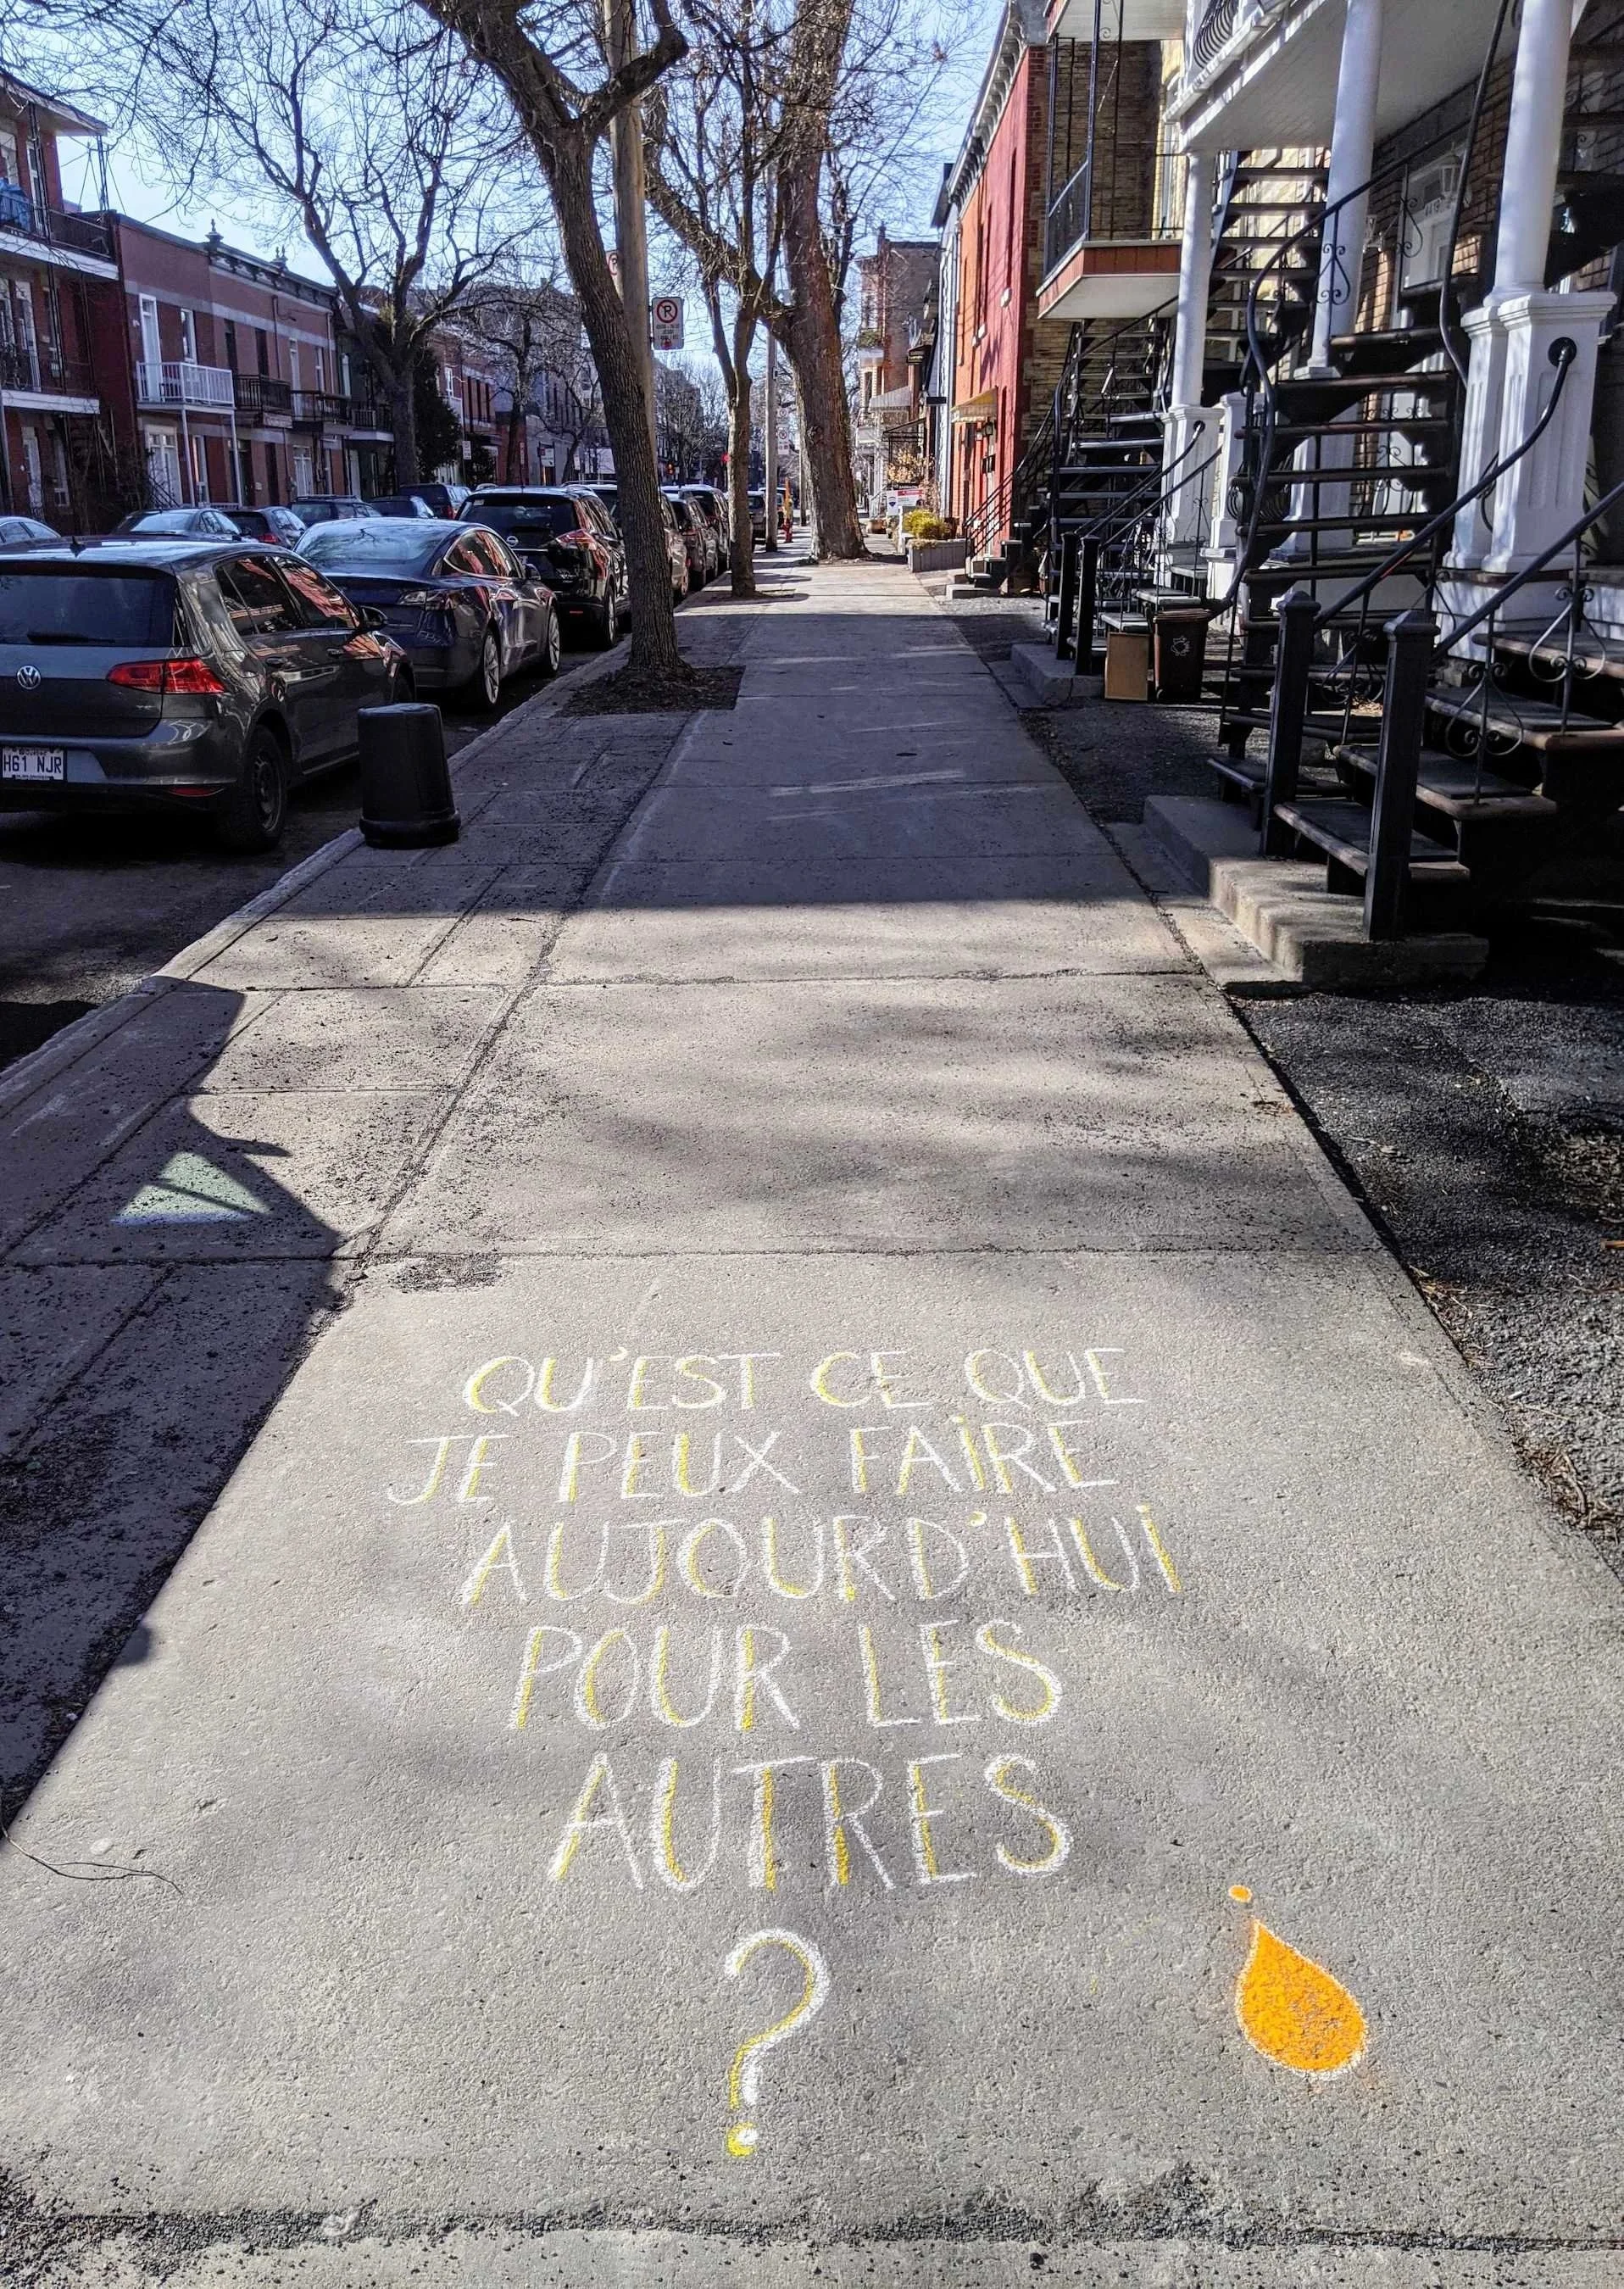 QU'EST CE QUE
JE PEUX FAIRE
AUJOURD'HUI
POUR LES
AUTRES
?
H61 NJR
P